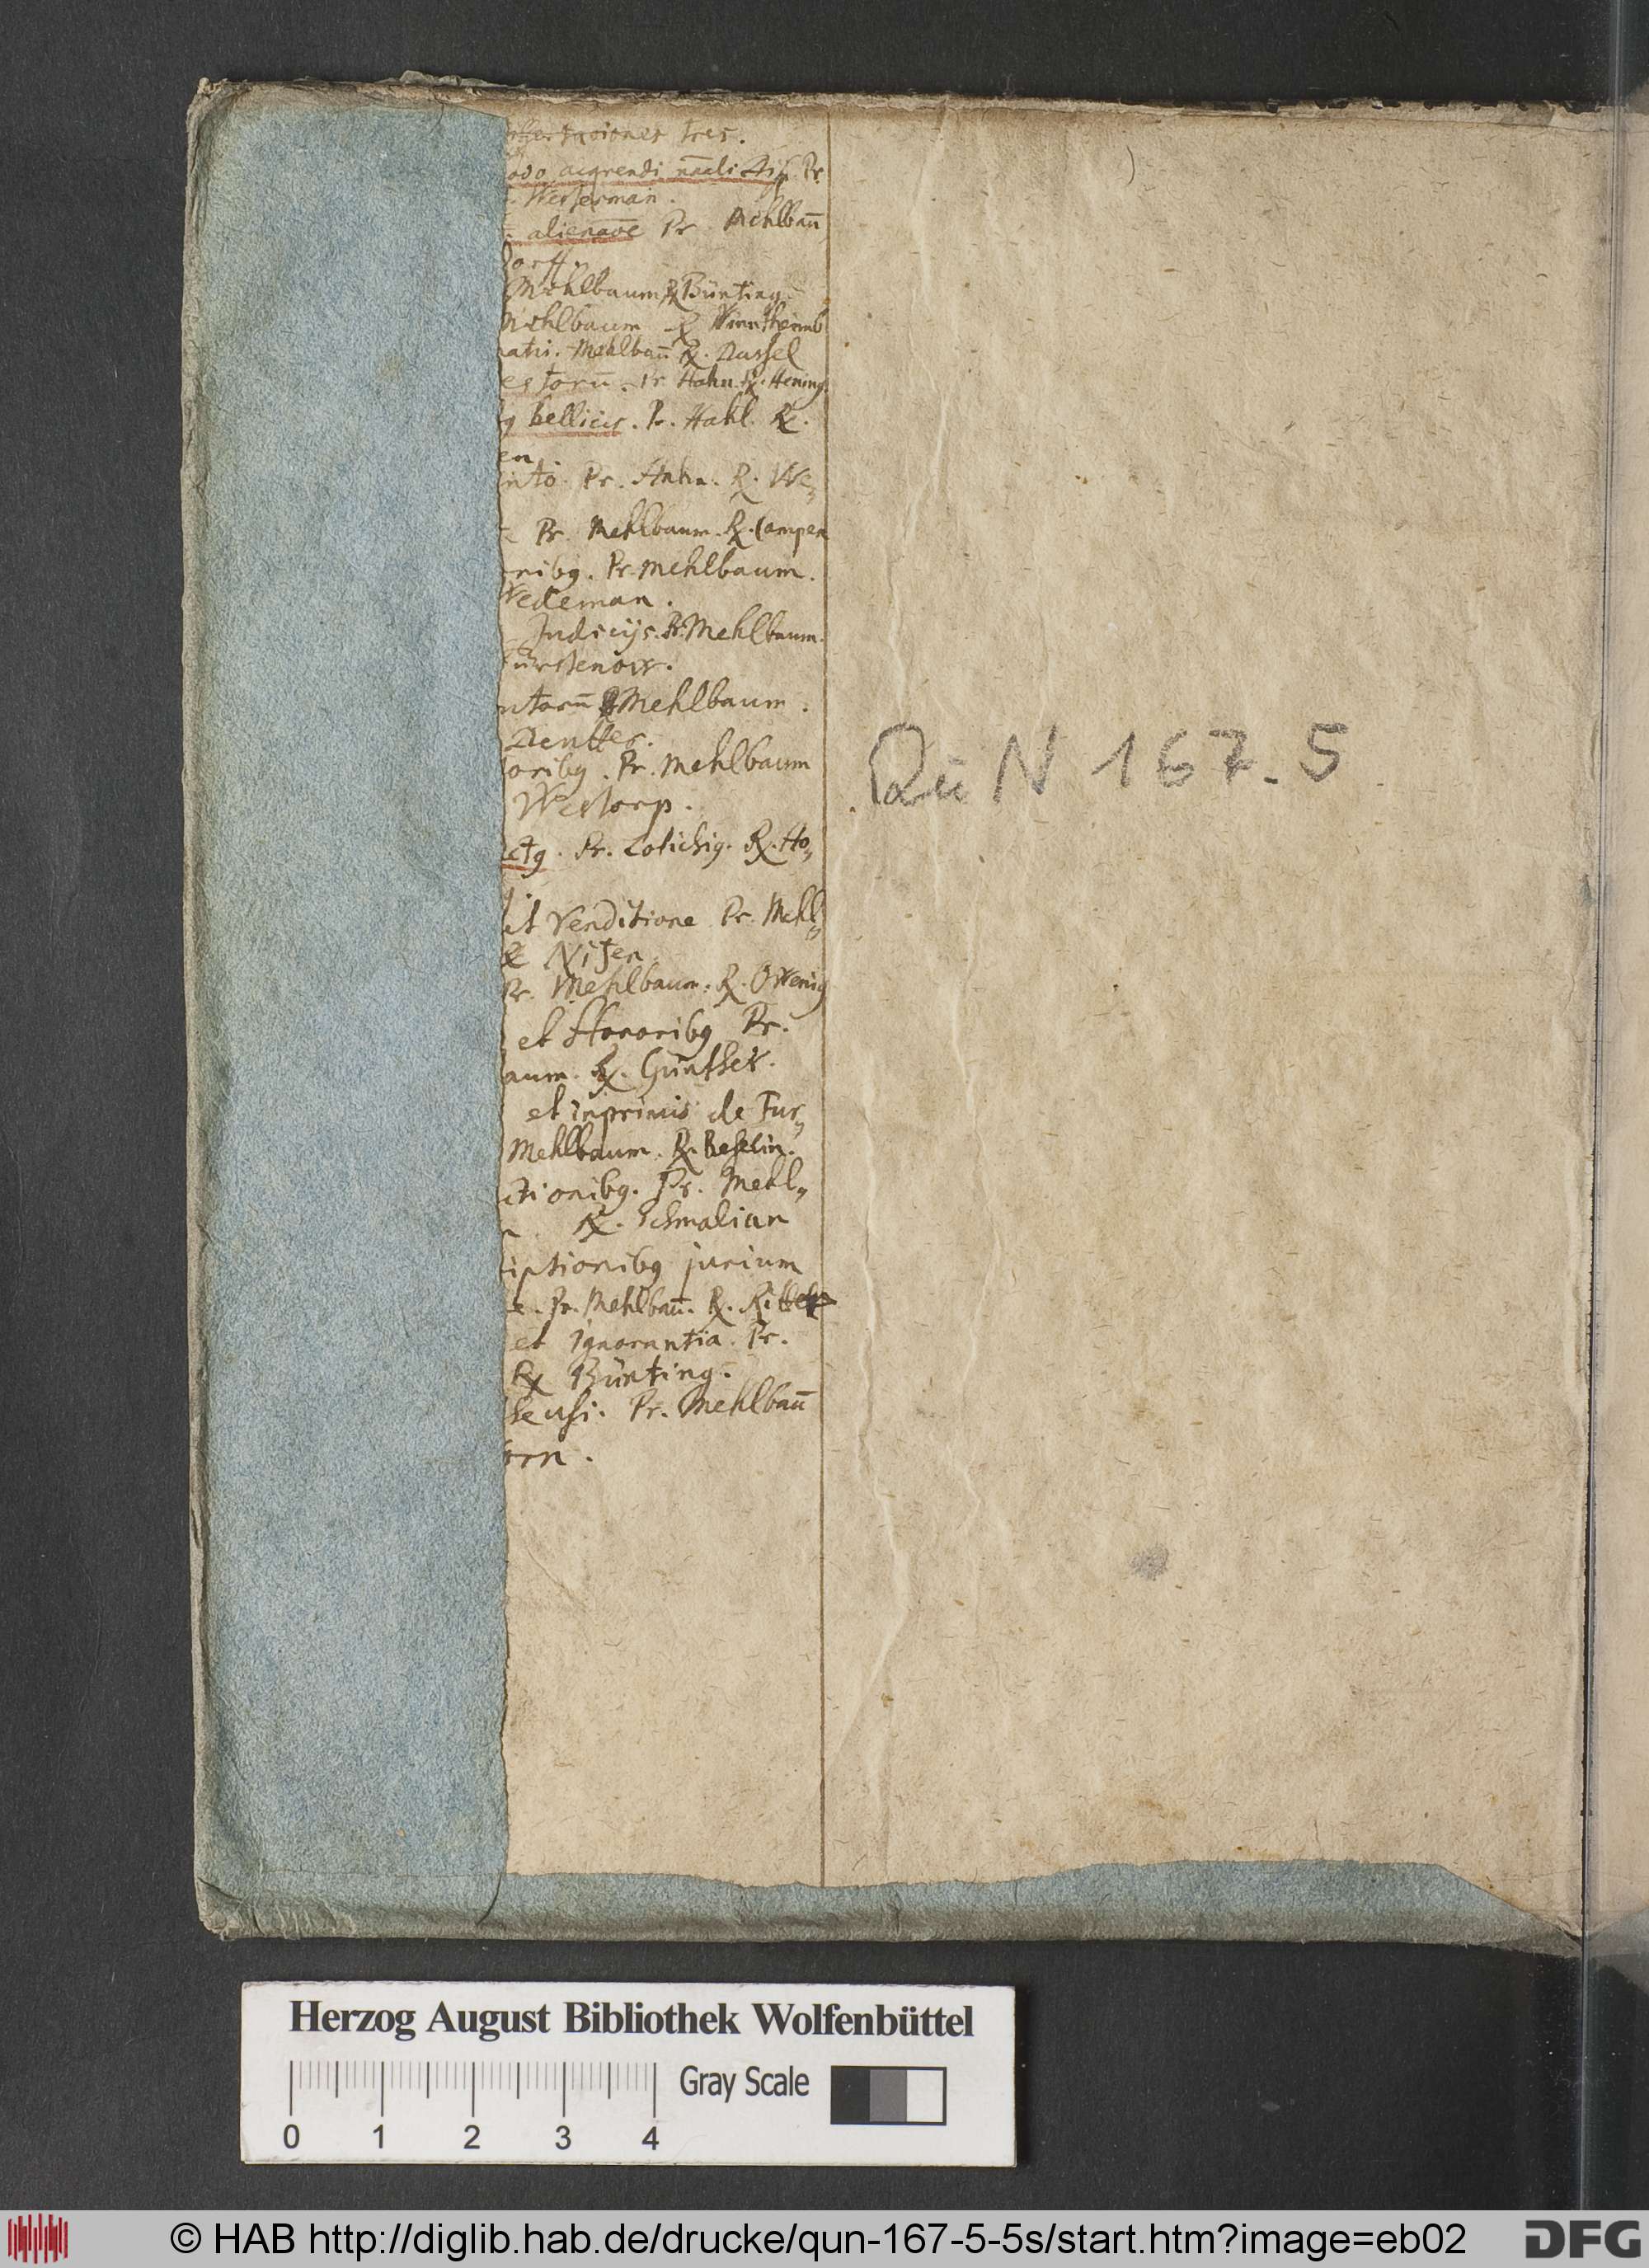 tationes tres.
odo acqrendi Pr.
Westerman.
alienaōe Pr Mehlbaū
dorff.
Mehlbaum R Bünting.
Mehlbaum R
atu. Mehlbaū R. Dassel
estorū. Pr Hahn. R. Hening
bellicis. Pr. Hahl. R.
en
into Pr. Hahn. R. We,,
Pr. Mehlbaum. R. Campen
nibg. Pr. Mehlbaum.
Wedeman.
Judicijs. Pr. Mehlbaum.
ürstenow.
ntorū Mehlbaum.
oribg. Pr. Mehlbaum
Westorp.
ctg. Pr. Lotichig. R. Ho,,
et Venditione Pr. Mehl,,
R Nisen
Pr. Mehlbaum. R.
et Honoribg Pr.
aum. R. Günther.
et inprimis de Fur,,
Mehlbaum. R. Beselin.
ctionibg. Pr. Mehl,,
R. Schmalian
iptionibg jurium
Pr. Mehlbaū. R.
et Ignorantia. Pr.
R Bünting.
Pr. Mehlbaū
orn.
Qū N 167.5
Herzog August Bibliothek Wolfenbüttel
Gray Scale
0 1 2 3 4
© HAB http://diglib.hab.de/drucke/qun-167-5-5s/start.htm?image=eb02
DFG